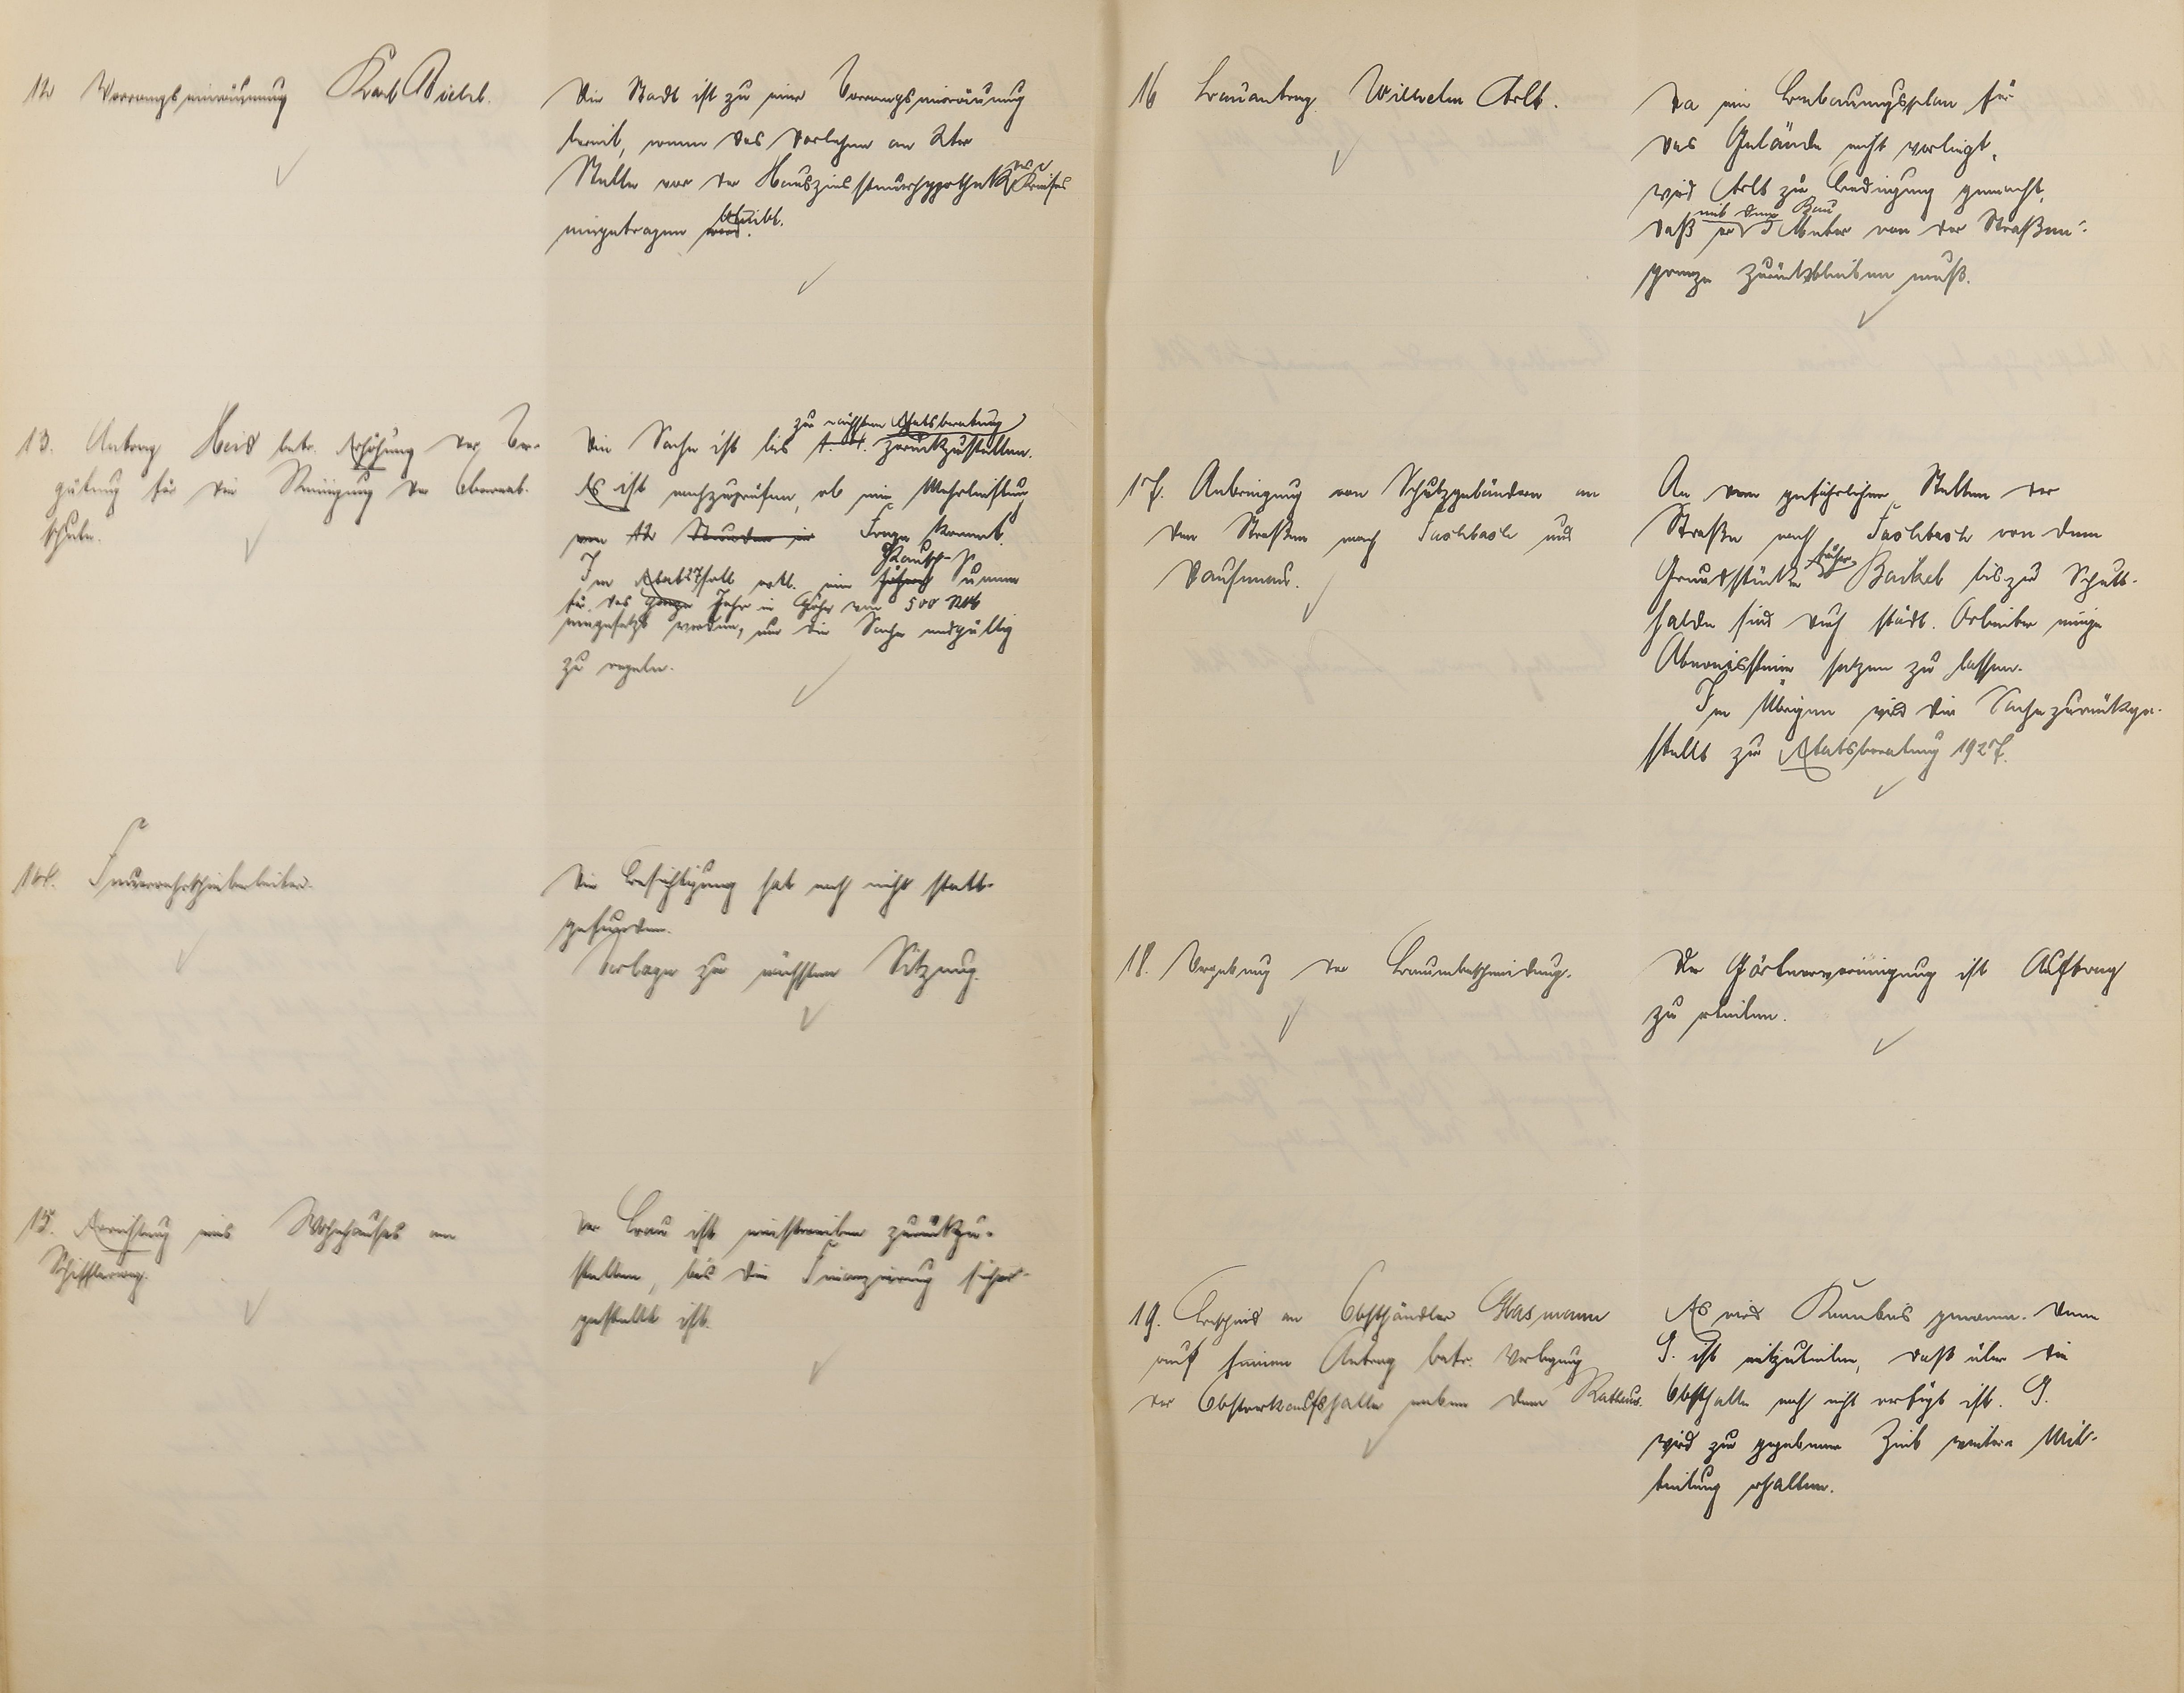 12 Vorrangseinräumung Karl Diehl.
Die Stadt ist zu einer Vorrangseinräumung
bereit, wenn das Darlehen an 2ter
Stelle vor der Hauszinssteuerhypothek des Kreises
eingetragen wird. bleibt.
13. Antrag Heid betr. Erhöhung der Ver-
gütung für die Reinigung der Oberreal-
schule.
zur nächsten Etatsberatung
Die Sache ist bis zurückzustellen.
Es ist nachzuprüfen, ob eine Mehrleistung
von 12 Stunden in Frage kommt.
Im Etat 27 soll evtl. eine Pausch-Summe
für das ganze Jahr in Höhe von 500 RM
eingesetzt werden, um die Sache endgültig
zu regeln.
14. Feuerwehrschiebeleiter.
Die Besichtigung hat noch nicht statt-
gefunden.
Vorlage zur nächsten Sitzung.
15. Errichtung eines Wohnhauses am
Schifflerweg.
Der Bau ist einstweilen zurückzu-
stellen, bis die Finanzierung sicher-
gestellt ist.
16 Bauantrag Wilhelm Arlt.
Da ein Bebauungsplan für
das Gelände nicht vorliegt,
wird Arlt zur Bedingung gemacht,
mit dem Bau
daß er 5 Meter von der Straßen-
grenze zurückbleiben muß.
17. Anbringung von Schutzgeländern an
den Straßen nach Fischbach und
An den gefährlichen Stellen der
Straße nach Fischbach von dem
Grundstücke früher bis zur Schutt-
halde sind durch städt. Arbeiter einige
Abweissteine setzen zu lassen.
Im Übrigen wird die Sache zurückge-
stellt zur Etatsberatung 1927.
18. Vergebung der Baumbeschneidung.
Der Gärtnervereinigung ist Auftrag
zu erteilen.
19. Bescheid an Obsthändler Glasmann
auf seinen Antrag betr. Verlegung
der Obstverkaufshalle neben dem Rathaus.
Es wird Kenntnis genomm. Dem
G. ist mitzuteilen, daß über die
Obsthalle noch nicht verfügt ist. G.
wird zur gegebenen Zeit weitere Mit-
teilung erhalten.